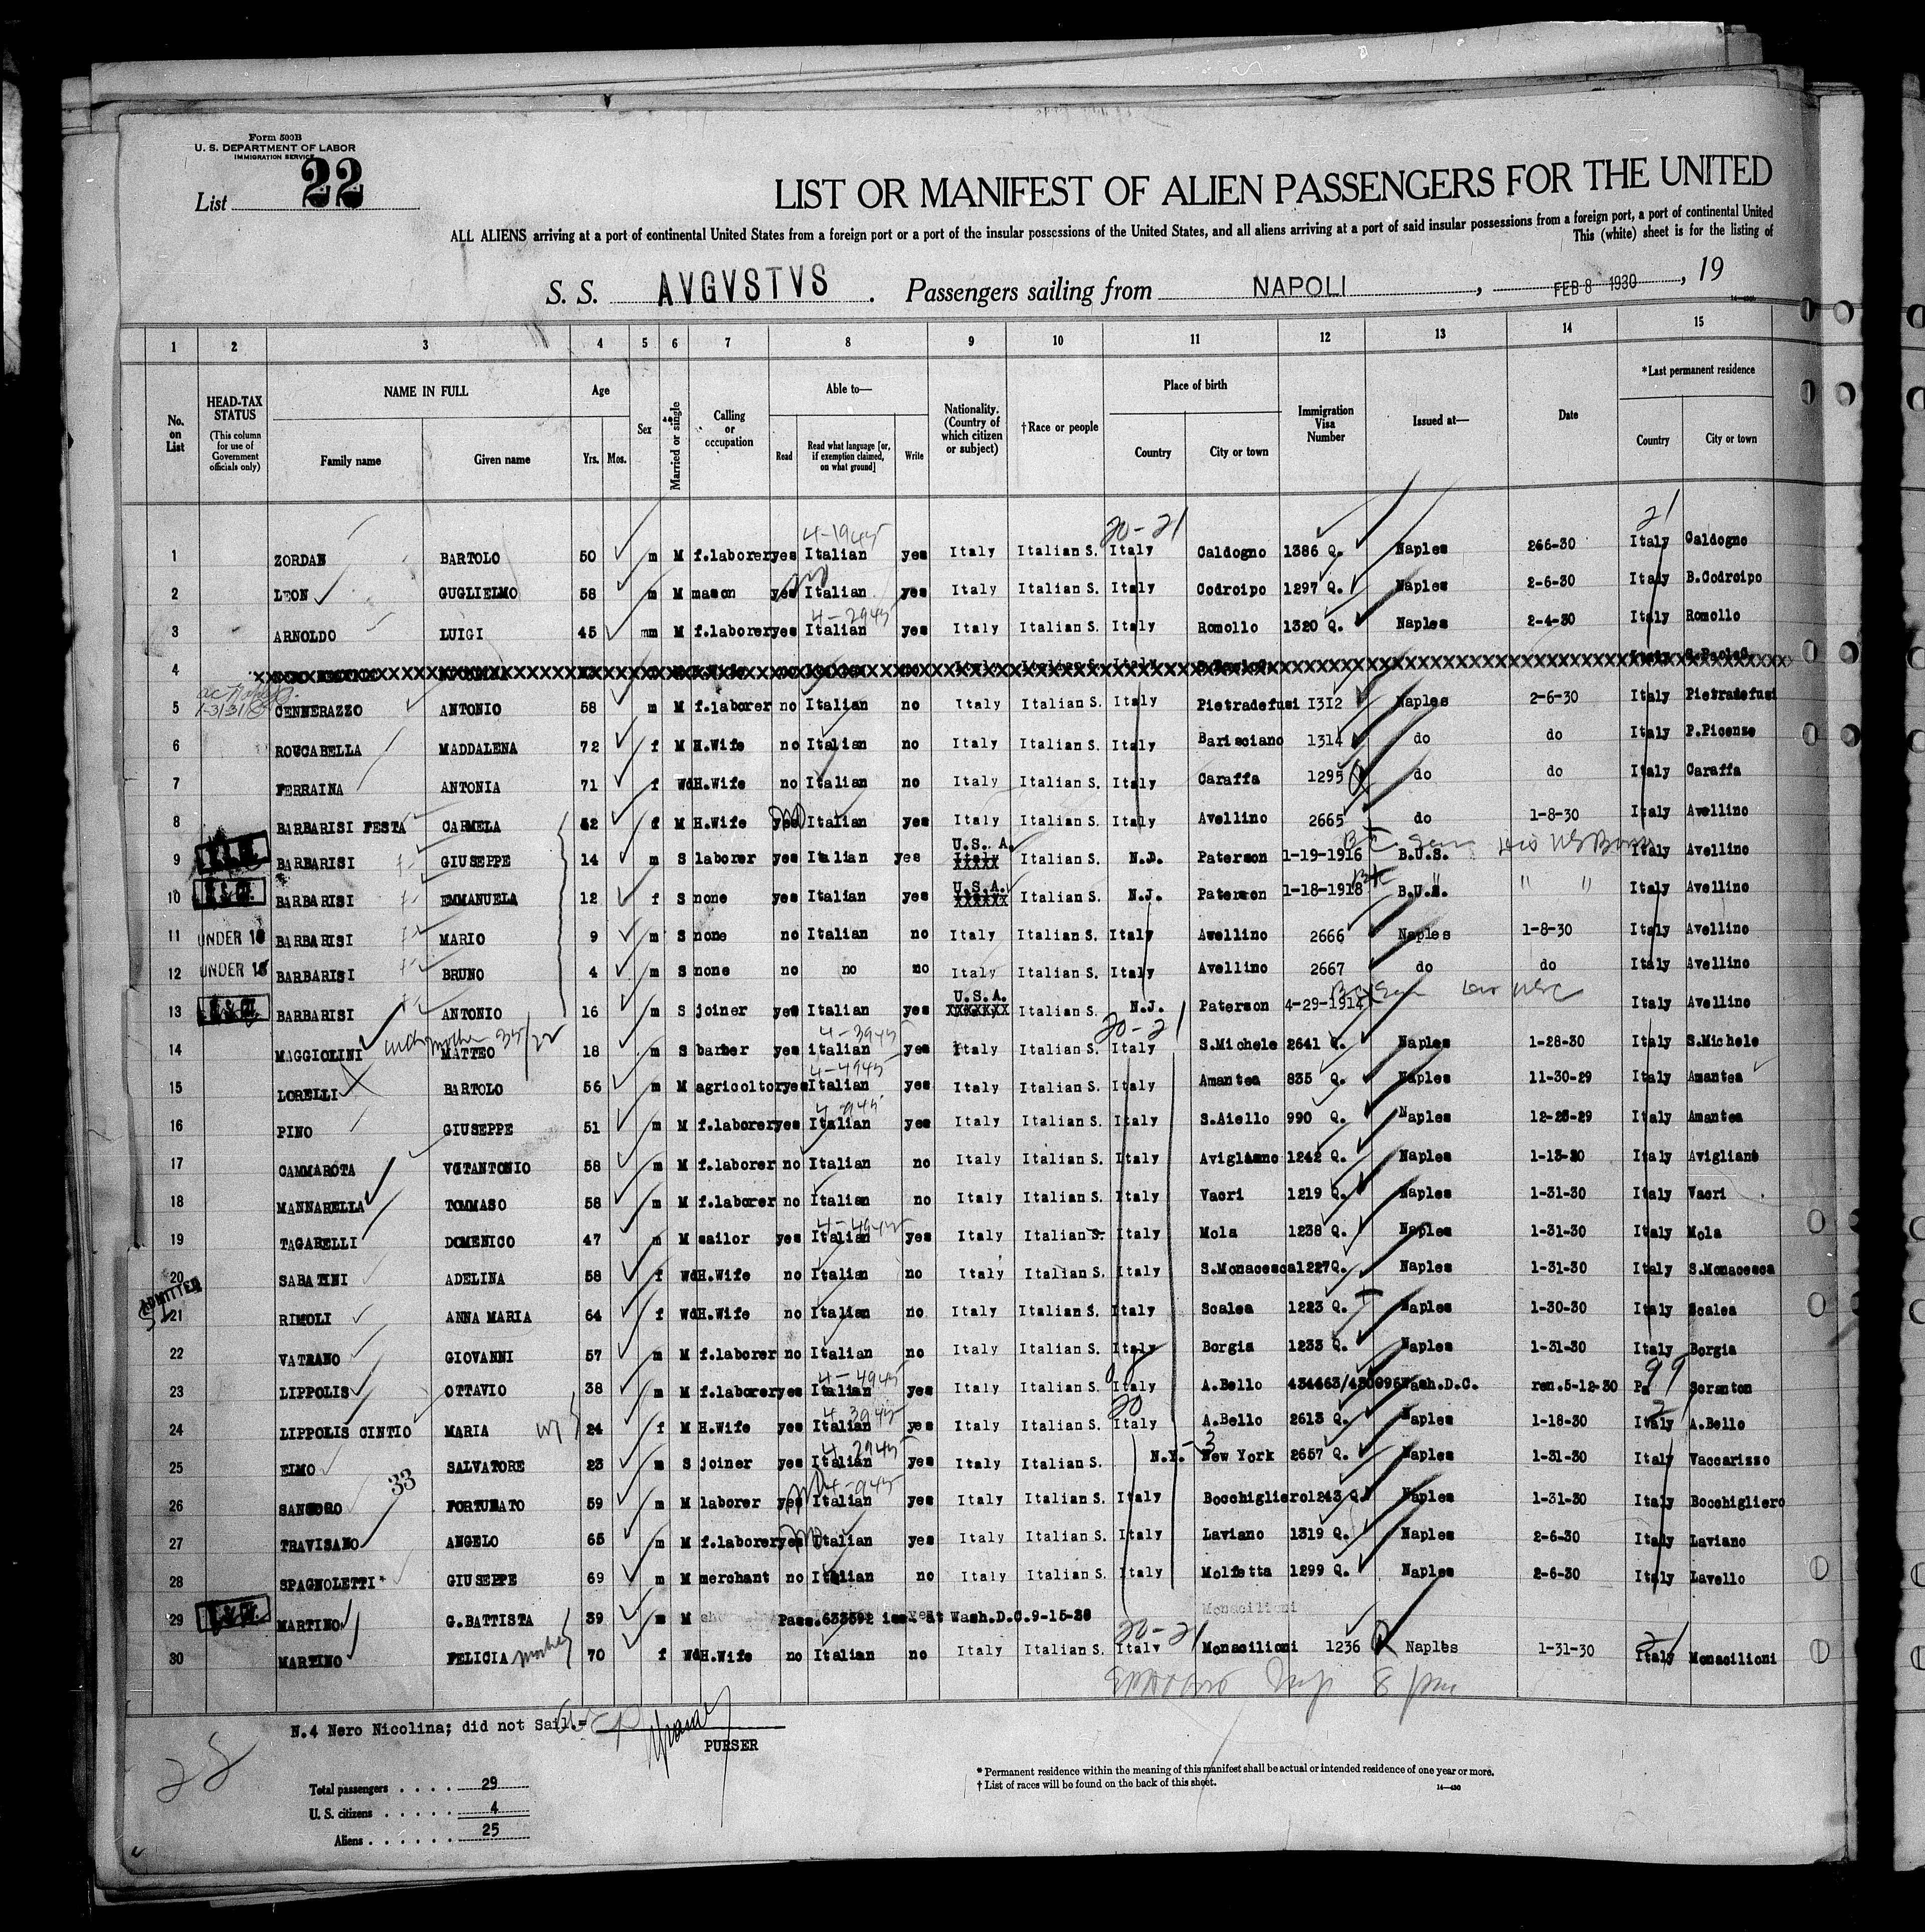 Form 500B
U. S. DEPARTMENT OF LABOR
IMMIGRATION SERVICE
List 22
LIST OR MANIFEST OF ALIEN PASSENGERS FOR THE UNITED
ALL ALIENS arriving at a port of continental United States from a foreign port or a port of the insular possessions of the United States, and all aliens arriving at a port of said insular possessions from a foreign port, a port of continental United
This (white) sheet is for the listing of
S. S. AVGVSTVS . Passengers sailing from NAPOLI , FEB 8 1930 , 19
1 2 3 4 5 6 7 8 9 10 11 12 13 14 15
No. on List
HEAD-TAX STATUS (This column for use of Government officials only)
NAME IN FULL Family name Given name
Age Yrs. Mos.
Sex
Married or single
Calling or occupation
Able to— Read Read what language [or, if exemption claimed, on what ground] Write
Nationality. (Country of which citizen or subject)
†Race or people
Place of birth Country City or town
Immigration Visa Number
Issued at—
Date
*Last permanent residence Country City or town
20-21 21
1 ZORDAN BARTOLO 50 m M f.laborer yes Italian yes Italy Italian S. Italy Caldogno 1386 Q. Naples 266-30 Italy Caldogno
2 LEON GUGLIELMO 58 m M mason yes Italian yes Italy Italian S. Italy Codroipo 1297 Q. Naples 2-6-30 Italy B.Codroipo
3 ARNOLDO LUIGI 45 mm M f.laborer yes Italian yes Italy Italian S. Italy Romollo 1320 Q. Naples 2-4-30 Italy Romollo
4
5 CENNERAZZO ANTONIO 58 m M f.laborer no Italian no Italy Italian S. Italy Pietradefusi 1312 Naples 2-6-30 Italy Pietradefusi
6 ROUCABELLA MADDALENA 72 f M H.Wife no Italian no Italy Italian S. Italy Barisciano 1314 do do Italy P.Picenze
7 FERRAINA ANTONIA 71 f Wd H.Wife no Italian no Italy Italian S. Italy Caraffa 1295 do do Italy Caraffa
8 BARBARISI FESTA CARMELA 42 f M H.Wife yes Italian yes Italy Italian S. Italy Avellino 2665 do 1-8-30 Italy Avellino
9 BARBARISI GIUSEPPE 14 m S laborer yes Italian yes U.S.A. Italian S. N.D. Paterson 1-19-1916 B.U.S. Italy Avellino
10 BARBARISI EMMANUELA 12 f S none yes Italian yes U.S.A. Italian S. N.J. Paterson 1-18-1918 B.U.S. " " Italy Avellino
11 UNDER 16 BARBARISI MARIO 9 m S none no Italian no Italy Italian S. Italy Avellino 2666 Naples 1-8-30 Italy Avellino
12 UNDER 16 BARBARISI BRUNO 4 m S none no no no Italy Italian S. Italy Avellino 2667 do do Italy Avellino
13 BARBARISI ANTONIO 16 m S joiner yes Italian yes U.S.A. XXXXXX Italian S. N.J. Paterson 4-29-1914 Italy Avellino
20-21
14 MAGGIOLINI MATTEO 18 m S barber yes italian yes Italy Italian S. Italy S.Michele 2641 Q. Naples 1-28-30 Italy S.Michele
15 LORELLI BARTOLO 56 m M agricoltor yes Italian yes Italy Italian S. Italy Amantea 835 Q. Naples 11-30-29 Italy Amantea
16 PINO GIUSEPPE 51 m M f.laborer yes Italian yes Italy Italian S. Italy S.Aiello 990 Q. Naples 12-28-29 Italy Amantea
17 CAMMAROTA VITANTONIO 58 m M f.laborer no Italian no Italy Italian S. Italy Avigliano 1242 Q. Naples 1-13-30 Italy Avigliano
18 MANNARELLA TOMMASO 58 m M f.laborer no Italian no Italy Italian S. Italy Vacri 1219 Q. Naples 1-31-30 Italy Vacri
19 TAGARELLI DOMENICO 47 m M sailor yes Italian yes Italy Italian S. Italy Mola 1238 Q. Naples 1-31-30 Italy Mola
20 SABATINI ADELINA 58 f Wd H.Wife no Italian no Italy Italian S. Italy S.Monacesca 1227 Q. Naples 1-31-30 Italy S.Monacesca
ADMITTED
21 RIMOLI ANNA MARIA 64 f Wd H.Wife no Italian no Italy Italian S. Italy Scalea 1223 Q. Naples 1-30-30 Italy Scalea
22 VATRANO GIOVANNI 57 m M f.laborer no Italian no Italy Italian S. Italy Borgia 1233 Q. Naples 1-31-30 Italy Borgia
23 LIPPOLIS OTTAVIO 38 m M f.laborer yes Italian yes Italy Italian S. Italy A.Bello 434463/430096 Wash.D.C. ren.5-12-30 Pa Scranton
24 LIPPOLIS CINTIO MARIA 24 f M H.Wife yes Italian yes Italy Italian S. Italy A.Bello 2613 Q. Naples 1-18-30 Italy A.Bello
25 ELMO SALVATORE 23 m S joiner yes Italian yes Italy Italian S. N.Y. New York 2657 Q. Naples 1-31-30 Italy Vaccarizzo
33
26 SANGORO FORTUNATO 59 m M laborer yes Italian yes Italy Italian S. Italy Bocchigliero 1243 Q. Naples 1-31-30 Italy Bocchigliero
27 TRAVISANO ANGELO 65 m M f.laborer yes Italian yes Italy Italian S. Italy Laviano 1319 Q. Naples 2-6-30 Italy Laviano
28 SPAGNOLETTI* GIUSEPPE 69 m M merchant no Italian no Italy Italian S. Italy Molfetta 1299 Q. Naples 2-6-30 Italy Lavello
29 MARTINO G.BATTISTA 39 m M Pass.633392 iss. at Wash.D.C.9-15-28 Monacilioni
20-21
30 MARTINO FELICIA mother 70 f Wd H.Wife no Italian no Italy Italian S. Italy Monacilioni 1236 Naples 1-31-30 Italy Monacilioni
N.4 Nero Nicolina; did not Sail.=
PURSER
28
Total passengers . . . . . 29
U. S. citizens . . . . . . 4
Aliens . . . . . . 25
* Permanent residence within the meaning of this manifest shall be actual or intended residence of one year or more.
† List of races will be found on the back of this sheet.
14—430